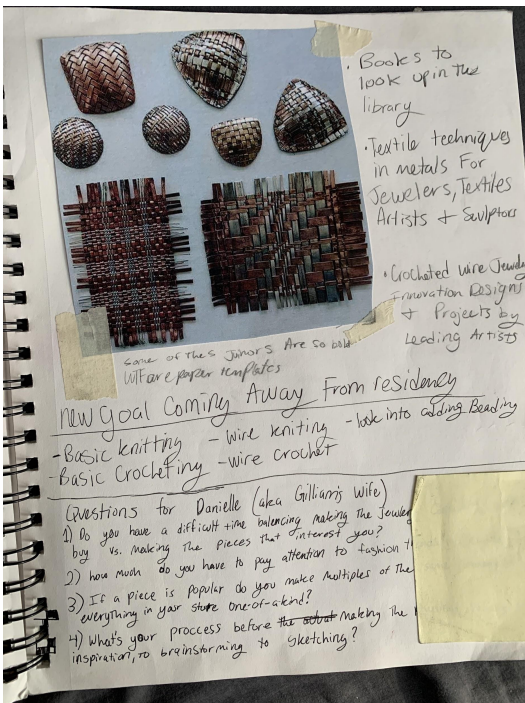 · Books to
look up in the
library
· Textile techniques
in metals For
Jewelers, Textiles
Artists + Sculptors
· Crocheted wire Jewelr
Innovation Designs
+ Projects by
Leading Artists
some of thes Juhors Are so bold
WTF are paper templates
new goal Coming Away From residency
- Basic knitting - wire kniting - look into adding Beading
- Basic Crocheting - wire crochet
Questions for Danielle (aka Gillian's Wife)
1) Do you have a difficult time balancing making the Jewelery
buy vs. making the pieces that interest you?
2) how much do you have to pay attention to fashion t
3) If a piece is popular do you make multiples of the
everything in your store one-of-a-kind?
4) What's your proccess before the making the
inspiration, to brainstorming to sketching?